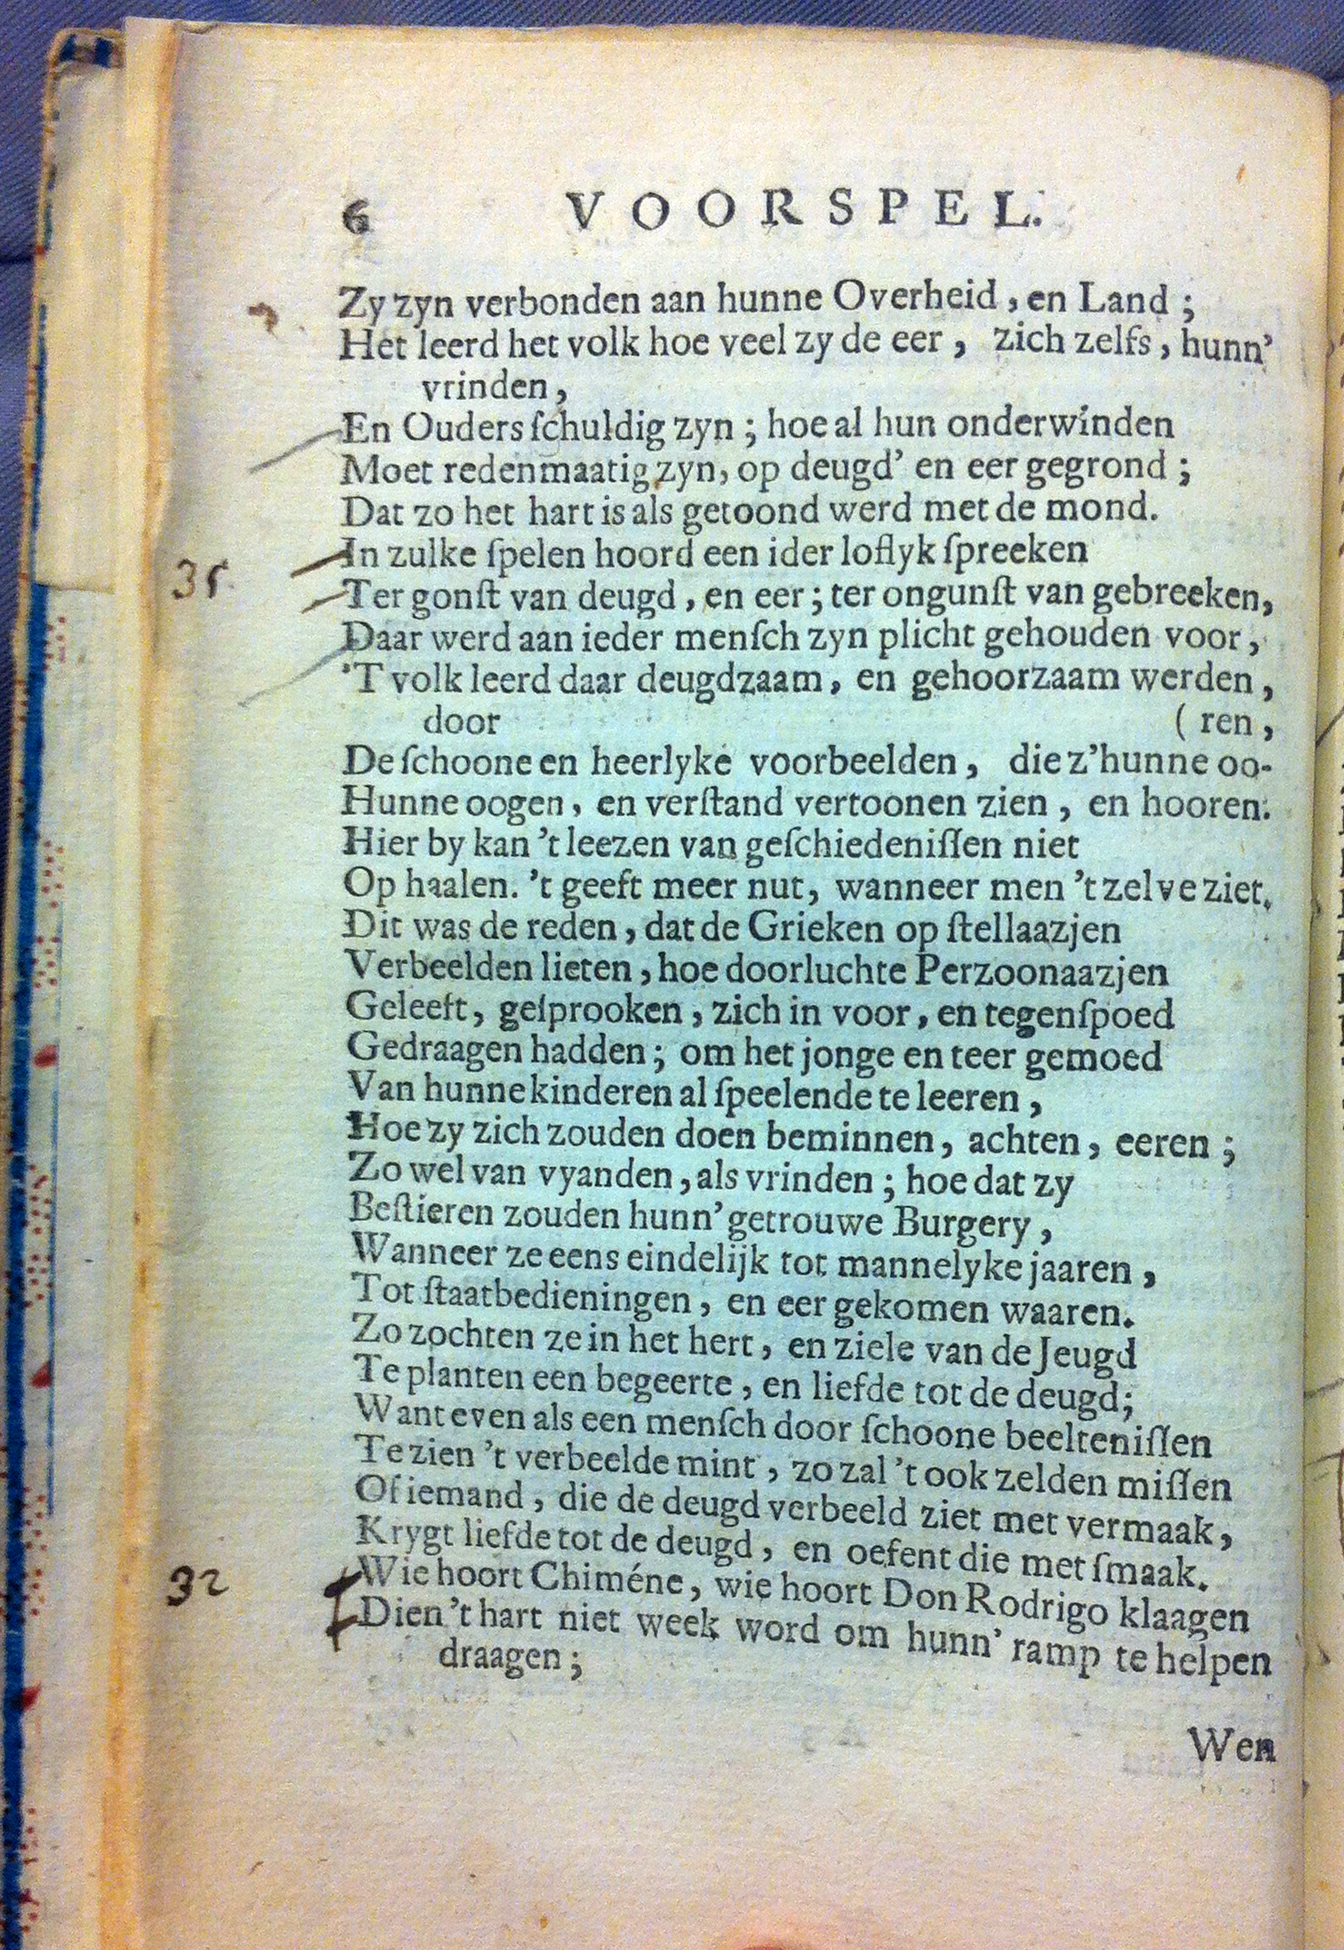 6 VOORSPEL.
Zy zyn verbonden aan hunne Overheid, en Land;
Het leerd het volk hoe veel zy de eer, zich zelfs, hunn'
vrinden,
En Ouders ſchuldig zyn; hoe al hun onderwinden
Moet redenmaatig zyn, op deugd' en eer gegrond;
Dat zo het hart is als getoond werd met de mond.
In zulke ſpelen hoord een ider loflyk ſpreeken
35
Ter gonſt van deugd, en eer; ter ongunſt van gebreeken,
Daar werd aan ieder menſch zyn plicht gehouden voor,
'T volk leerd daar deugdzaam, en gehoorzaam werden,
door (ren,
De ſchoone en heerlyke voorbeelden, die z'hunne oo-
Hunne oogen, en verſtand vertoonen zien, en hooren.
Hier by kan 't leezen van geſchiedeniſſen niet
Op haalen. 't geeft meer nut, wanneer men 't zelve ziet.
Dit was de reden, dat de Grieken op ſtellaazjen
Verbeelden lieten, hoe doorluchte Perzoonaazjen
Geleeft, geſprooken, zich in voor, en tegenſpoed
Gedraagen hadden; om het jonge en teer gemoed
Van hunne kinderen al ſpeelende te leeren,
Hoe zy zich zouden doen beminnen, achten, eeren;
Zo wel van vyanden, als vrinden; hoe dat zy
Beſtieren zouden hunn' getrouwe Burgery,
Wanneer ze eens eindelijk tot mannelyke jaaren,
Tot ſtaatbedieningen, en eer gekomen waaren.
Zo zochten ze in het hert, en ziele van de Jeugd
Te planten een begeerte, en liefde tot de deugd;
Want even als een menſch door ſchoone beelteniſſen
Te zien 't verbeelde mint, zo zal 't ook zelden miſſen
Of iemand, die de deugd verbeeld ziet met vermaak,
Krygt liefde tot de deugd, en oefent die met ſmaak.
32
Wie hoort Chiméne, wie hoort Don Rodrigo klaagen
Dien 't hart niet week word om hunn' ramp te helpen
draagen;
Wen